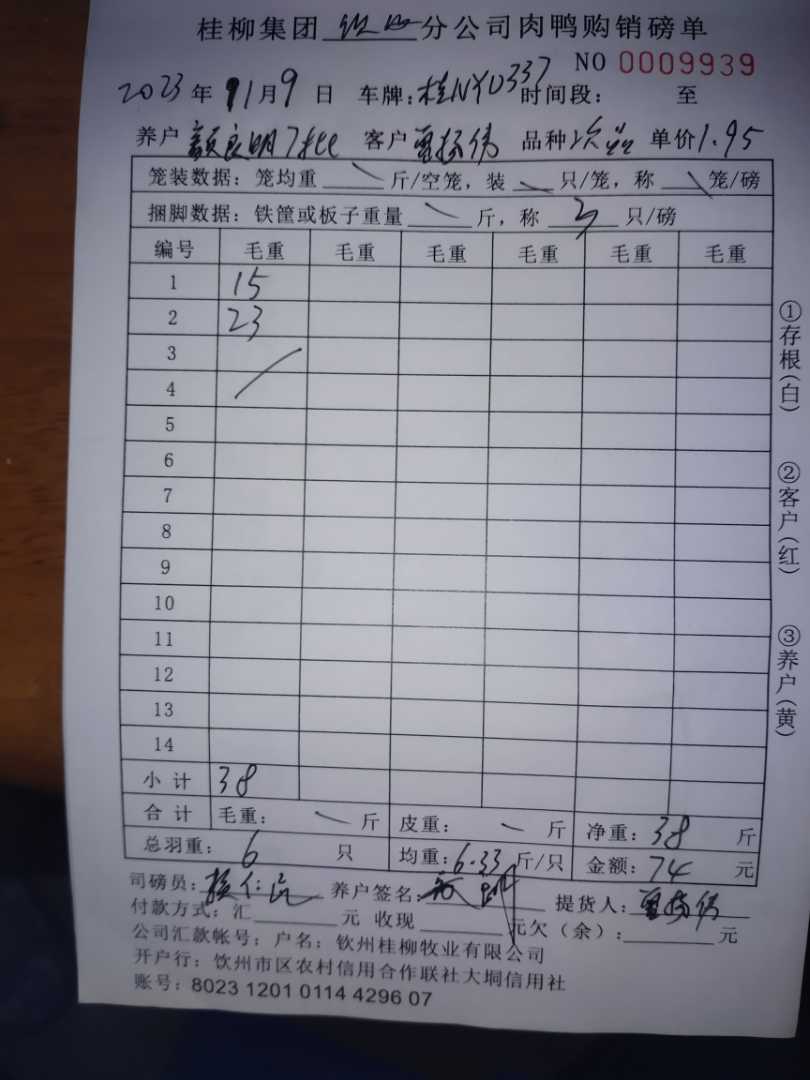 桂柳集团 钦州 分公司肉鸭购销磅单
NO 0009939
2023年 11月 9 日 车牌：桂NYU337 时间段： 至
养户 良明 客户 品种 次品 单价 1.95
笼装数据：笼均重 斤/空笼，装 只/笼，称 笼/磅
捆脚数据：铁筐或板子重量 斤，称 3 只/磅
编号 毛重 毛重 毛重 毛重 毛重 毛重
1 15
2 23
3
4
5
6
7
8
9
10
11
12
13
14
小计 38
合计 毛重： 斤 皮重： 斤 净重：38 斤
总羽重： 6 只 均重：6.33 斤/只 金额：74 元
司磅员： 养户签名： 提货人：
付款方式：汇 元 收现 元欠（余）： 元
公司汇款帐号：户名：钦州桂柳牧业有限公司
开户行：钦州市区农村信用合作联社大垌信用社
账号：8023 1201 0114 4296 07
①存根（白）
②客户（红）
③养户（黄）